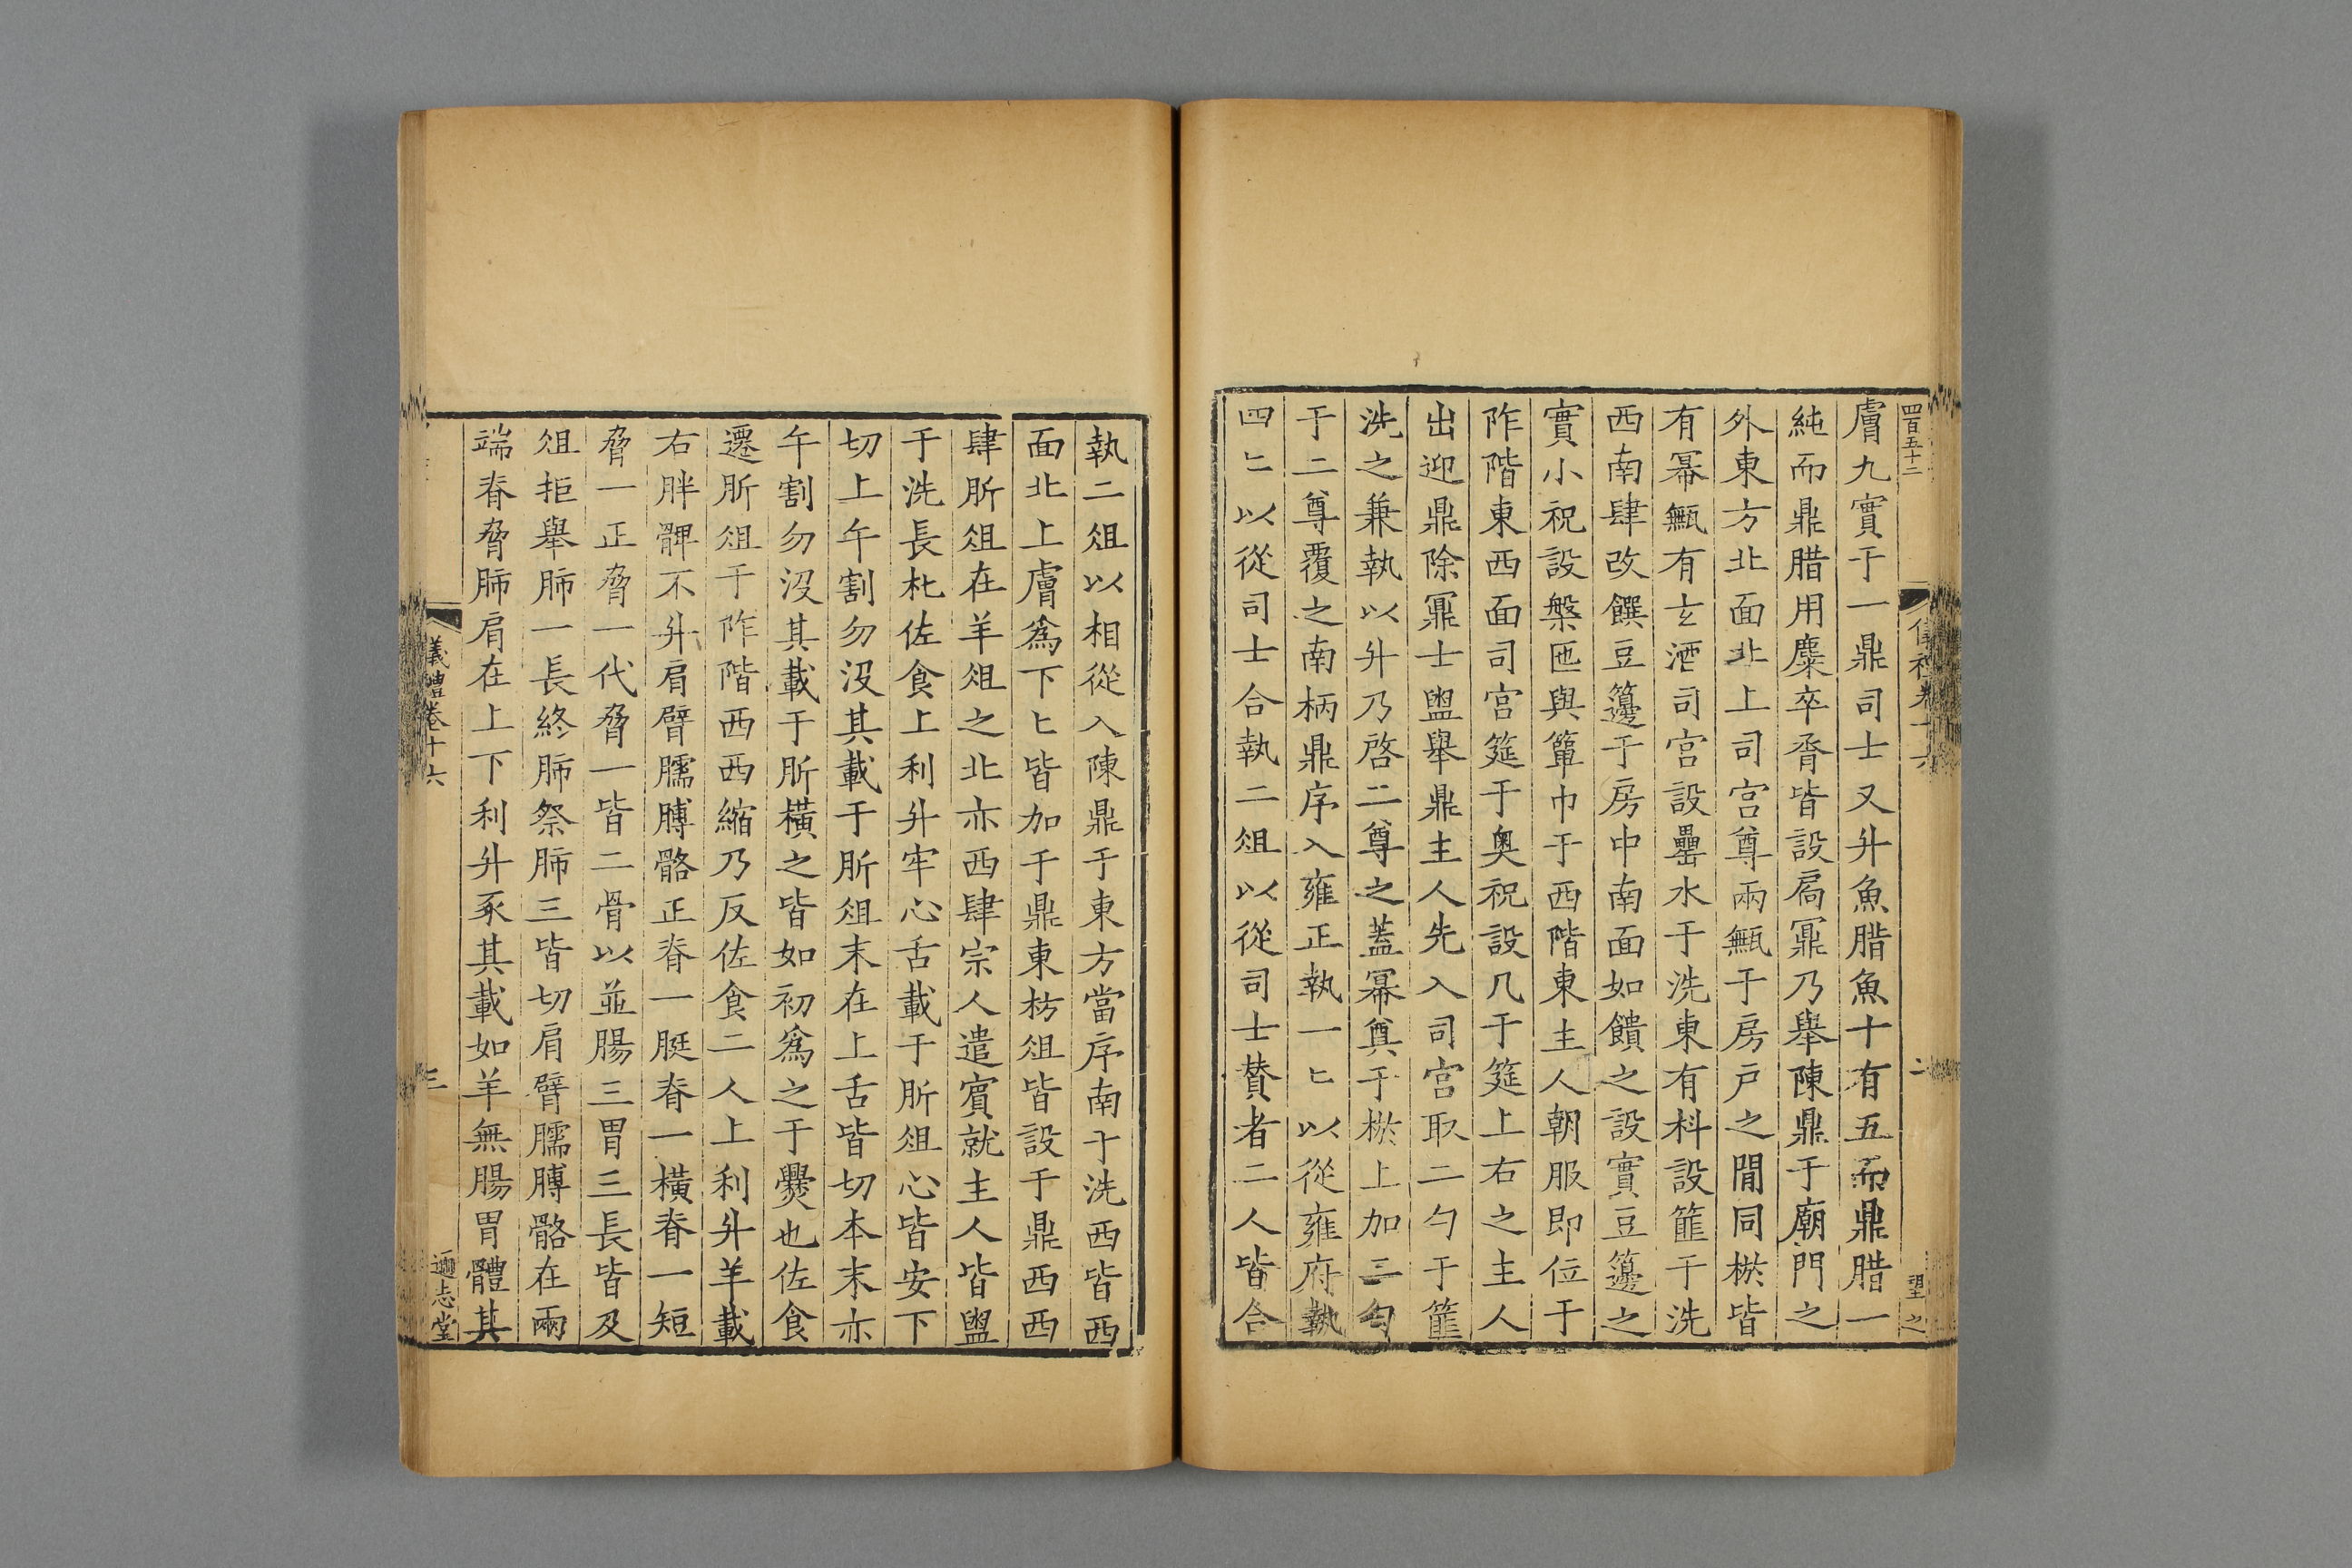 四百五十二
儀禮卷十六
二
望之
膚九實于一鼎司士又升魚腊魚十有五而鼎腊一
純而鼎腊用麋卒脀皆設扃鼏乃舉陳鼎于廟門之
外東方北面北上司宫尊兩甒于房戶之間同棜皆
有冪甒有玄酒司宫設罍水于洗東有枓設篚于洗
西南肆改饌豆籩于房中南面如饋之設實豆籩之
實小祝設槃匜與簞巾于西階東主人朝服即位于
阼階東西面司宫筵于奥祝設几于筵上右之主人
出迎鼎除鼏士盥舉鼎主人先入司宫取二勺于篚
洗之兼執以升乃啓二尊之蓋冪奠于棜上加二勺
于二尊覆之南柄鼎序入雍正執一匕以從雍府執
四匕以從司士合執二俎以從司士賛者二人皆合
執二俎以相從入陳鼎于東方當序南于洗西皆西
面北上膚爲下匕皆加于鼎東枋俎皆設于鼎西西
肆肵俎在羊俎之北亦西肆宗人遣賓就主人皆盥
于洗長朼佐食上利升牢心舌載于肵俎心皆安下
切上午割勿没其載于肵俎末在上舌皆切本末亦
午割勿没其載于肵横之皆如初爲之于爨也佐食
遷肵俎于阼階西西縮乃反佐食二人上利升羊載
右胖髀不升肩臂臑膊骼正脊一脡脊一横脊一短
脅一正脅一代脅一皆二骨以並腸三胃三長皆及
俎拒舉肺一長終肺祭肺三皆切肩臂臑膊骼在兩
端脊脅肺肩在上下利升豕其載如羊無腸胃體其
儀禮卷十六
三
邇志堂